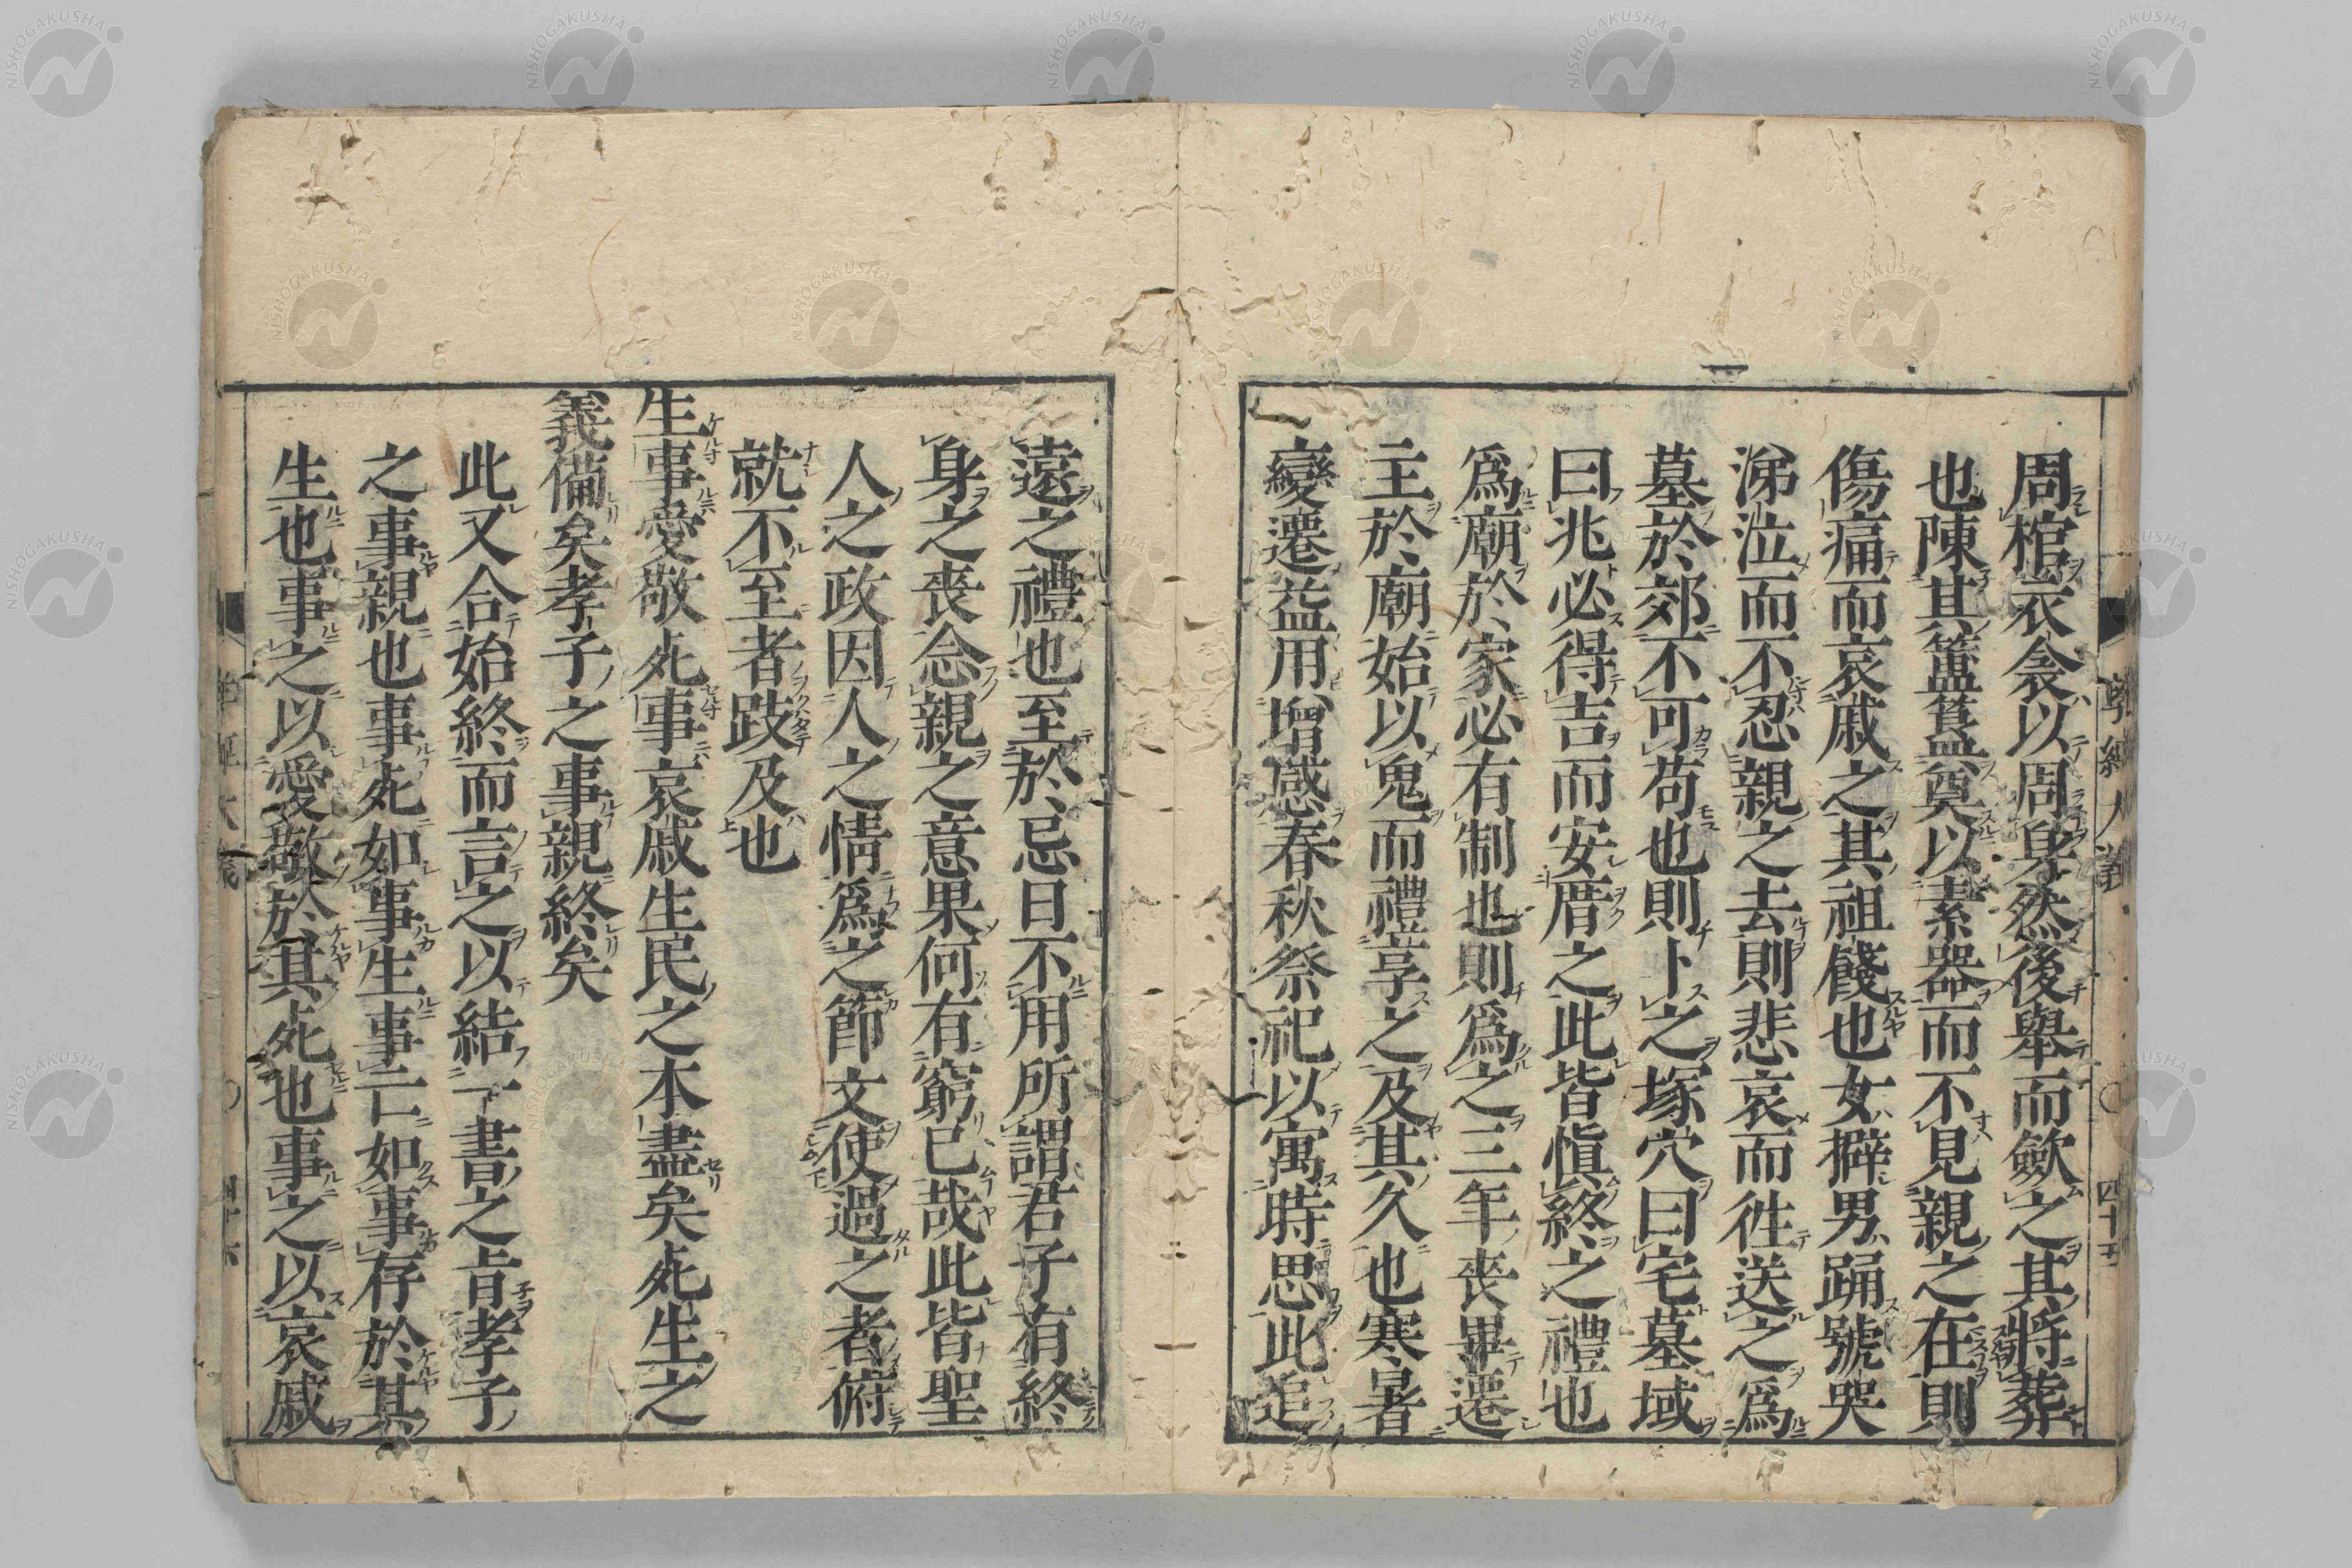 周棺衣衾以周身然後舉而歛之其將葬
也陳其簠簋奠以素器而不見親之在則
傷痛而哀戚之其祖餞也女擗男踊號哭
涕泣而不忍親之去則悲哀而徃送之爲
墓於郊不可苟也則卜之塚穴曰宅墓域
曰兆必得吉而安厝之此皆愼終之禮也
爲廟於家必有制也則爲之三年喪畢遷
主於廟始以鬼而禮享之及其久也寒暑
變遷益用增感春秋祭祀以寓時思此追
遠之禮也至於忌日不用所謂君子有終
身之喪念親之意果何有窮已哉此皆聖
人之政因人之情爲之節文使過之者俯
就不至者跂及也
生事愛敬死事哀戚生民之本盡矣死生之
義備矣孝子之事親終矣
此又合始終而言之以結一書之旨孝子
之事親也事死如事生事亡如事存於其
生也事之以愛敬於其死也事之以哀戚
孝經大義
四十五
NISHOGAKUSHA